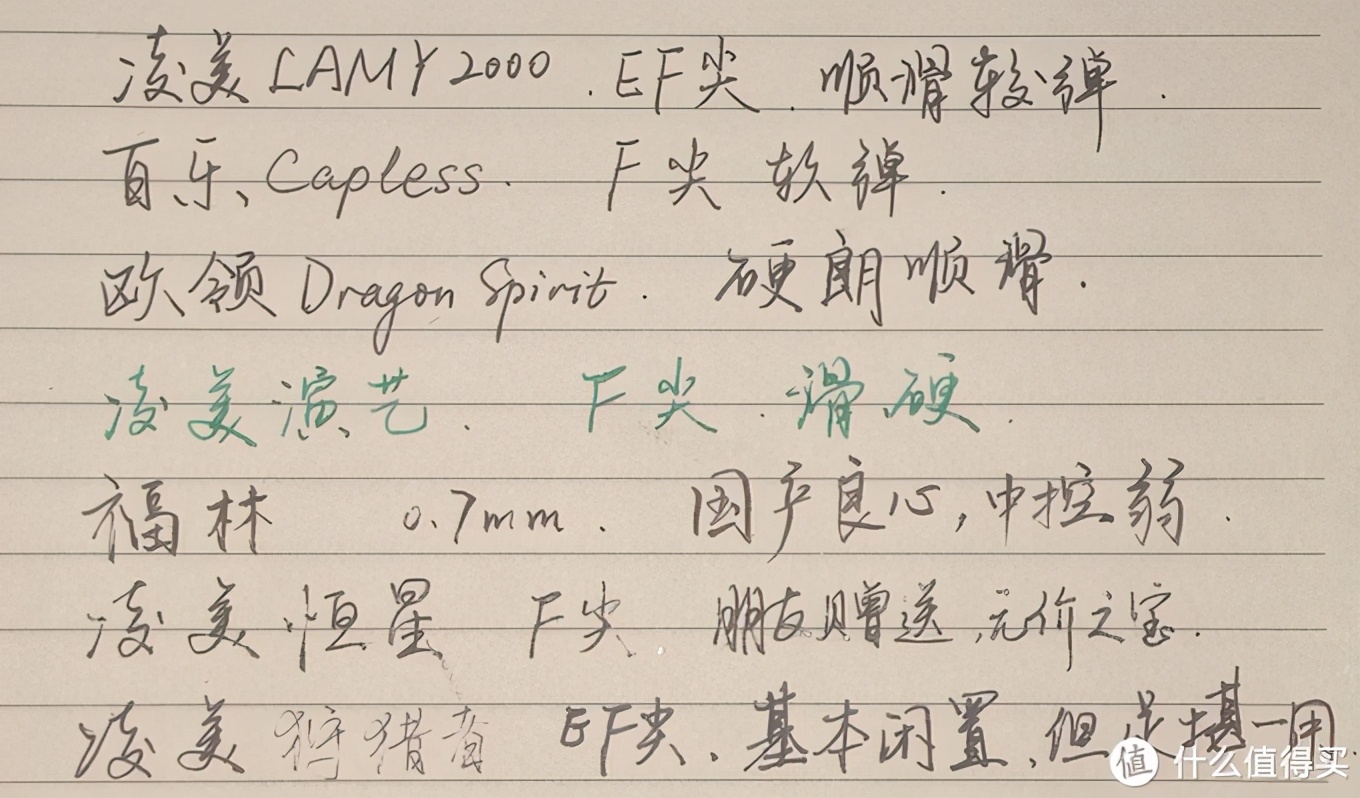 凌美 LAMY 2000 . EF尖 . 顺滑较弹 .
百乐、Capless . F尖 软弹 .
欧领 Dragon Spirit . 硬朗顺滑 .
凌美演艺 . F尖 . 滑硬 .
福林 0.7mm . 国产良心,中控弱 .
凌美恒星 F尖 . 朋友赠送,无价之宝 .
凌美狩猎者 EF尖、基本闲置,但足堪一用.
值 什么值得买